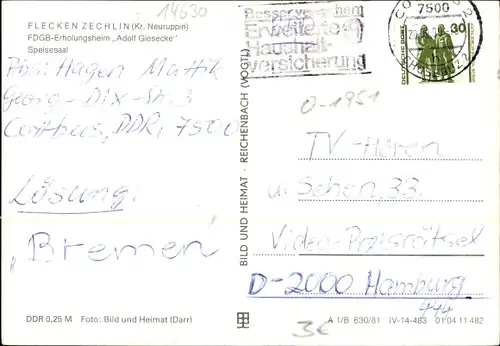 14630
FLECKEN ZECHLIN (Kr. Neuruppin)
FDGB-Erholungsheim „Adolf Giesecke"
Speisesaal
Hagen
Georg-Dix-Str. 3
Cottbus, DDR, 7500
Lösung:
„Bremen"
DDR 0,25 M Foto: Bild und Heimat (Darr)
BILD UND HEIMAT · REICHENBACH (VOGTL)
Besser versichern
Erweiterte
Haushalt-
versicherung
7500
DEUTSCHE POST
30
O-1951
TV-Hören
u. Sehen, 33.
Video-Preisrätsel
D-2000 Hamburg
444
3€
A 1/B 630/81 IV-14-483 01 04 11 482